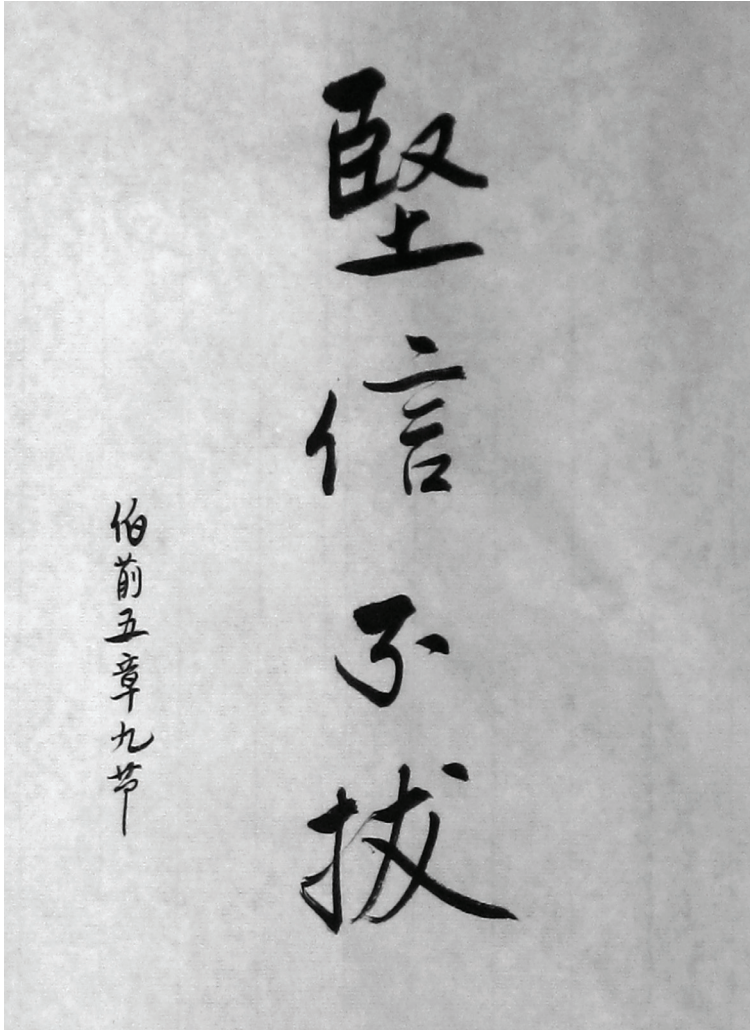 堅信不拔
伯前五章九节